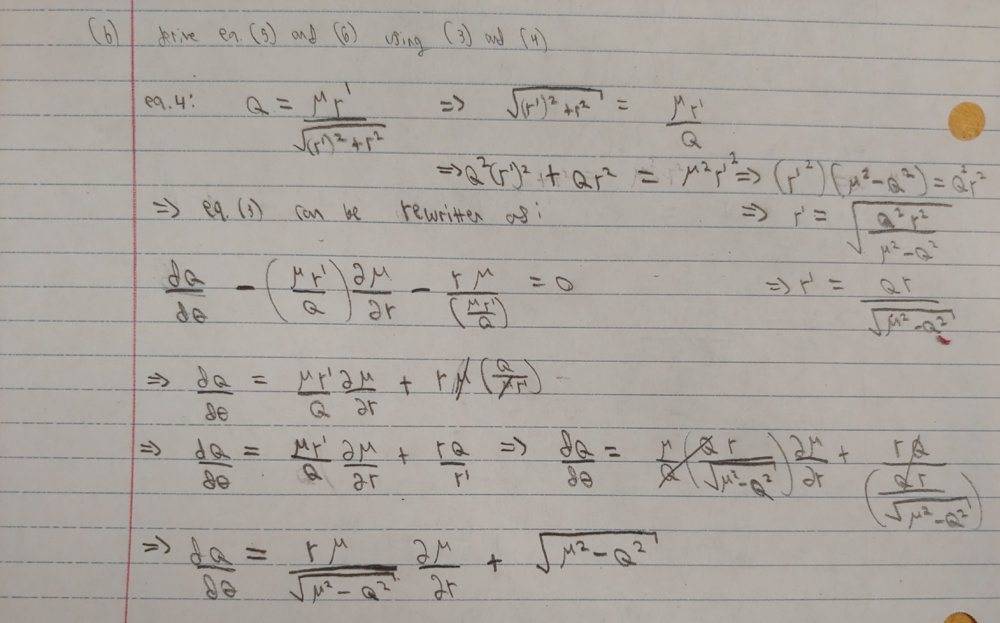 (b) derive eq. (5) and (6) using (3) and (4)
eq. 4: Q = μr' / √((r')² + r²) => √((r')² + r²) = μr' / Q
=> Q²(r')² + Qr² = μ²r'² => (r'²)(μ² - Q²) = Q²r²
=> eq. (3) can be rewritten as: => r' = √(Q²r² / (μ² - Q²))
dQ/dθ - (μr'/Q) ∂μ/∂r - rμ / (μr'/Q) = 0 => r' = Qr / √(μ² - Q²)
=> dQ/dθ = μr'/Q ∂μ/∂r + rμ (Q/μr')
=> dQ/dθ = μr'/Q ∂μ/∂r + rQ/r' => dQ/dθ = μ/Q (Qr / √(μ² - Q²)) ∂μ/∂r + rQ / (Qr / √(μ² - Q²))
=> dQ/dθ = rμ / √(μ² - Q²) ∂μ/∂r + √(μ² - Q²)